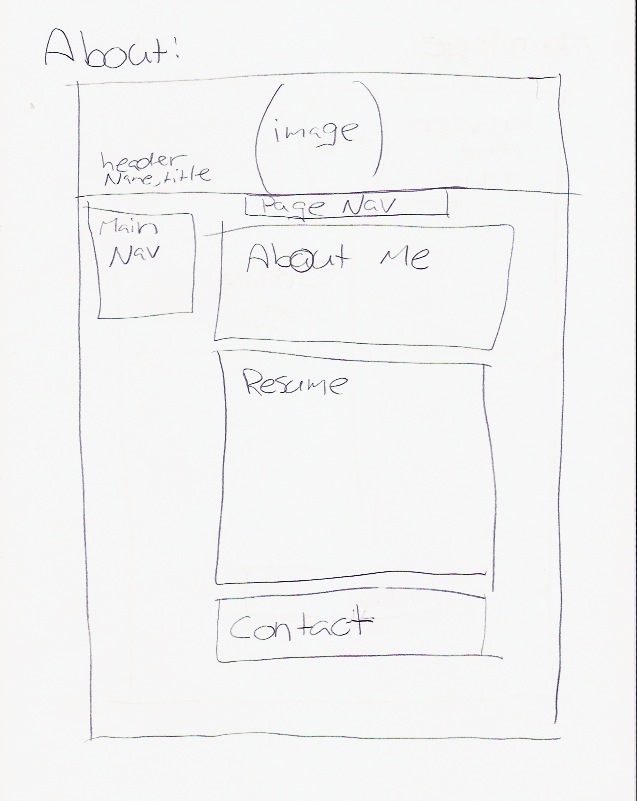 About:
image
header
Name, title
Page Nav
Main
Nav
About Me
Resume
Contact